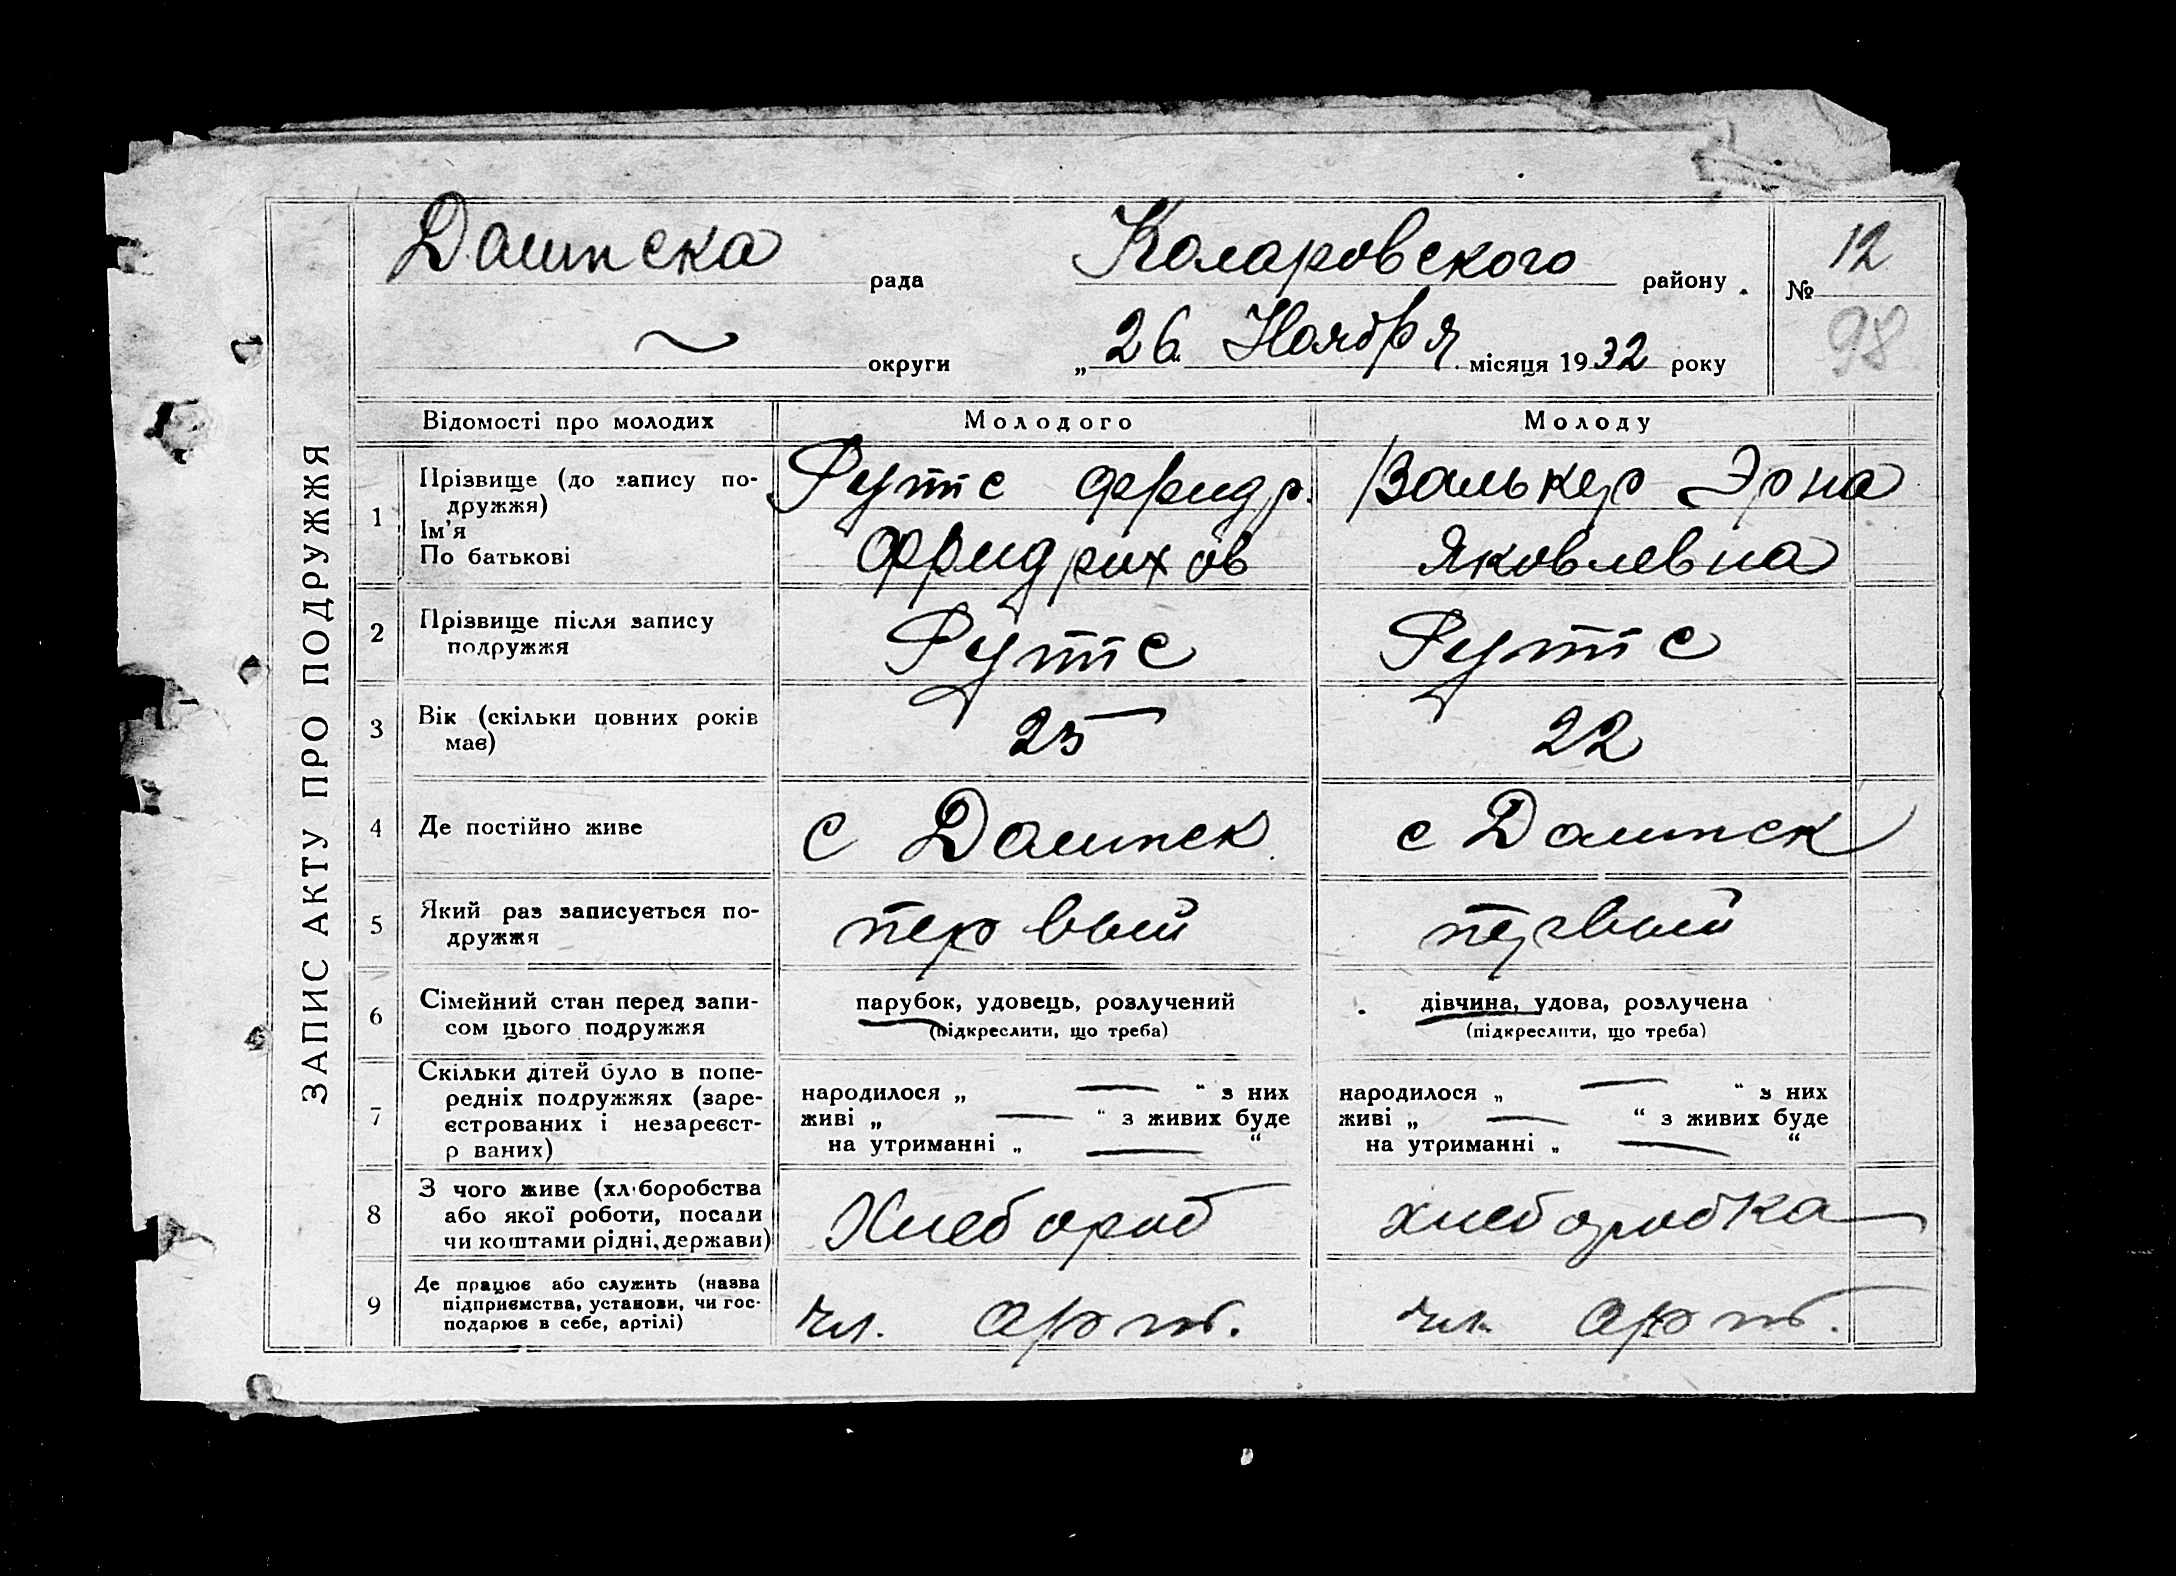 Даштска рада Коларовского району. № 12
98
~ округи „ 26 Ноября місяця 1932 року
ЗАПИС АКТУ ПРО ПОДРУЖЖЯ
Відомості про молодих Молодого Молоду
1 Прізвище (до запису по-
дружжя)
Ім'я
По батькові
Рутс Фридр.
Фридрихов
Валькер Эрна
Яковлевна
2 Прізвище після запису
подружжя
Рутс Рутс
3 Вік (скільки повних років
має)
25 22
4 Де постійно живе с с
5 Який раз записується по-
дружжя
первый первый
6 Сімейний стан перед запи-
сом цього подружжя
парубок, удовець, розлучений
(підкреслити, що треба)
дівчина, удова, розлучена
(підкреслити, що треба)
7 Скільки дітей було в попе-
редніх подружжях (заре-
єстрованих і незареєст-
р ваних)
народилося „ — “ з них
живі „ — “ з живих буде
на утриманні „ — “
народилося „ — “ з них
живі „ — “ з живих буде
на утриманні „ — “
8 З чого живе (хліборобства
або якої роботи, посади
чи коштами рідні, держави)
Хлебороб хлеборобка
9 Де працює або служить (назва
підприємства, установи, чи гос-
подарює в себе, артілі)
чл. арт. чл. арт.